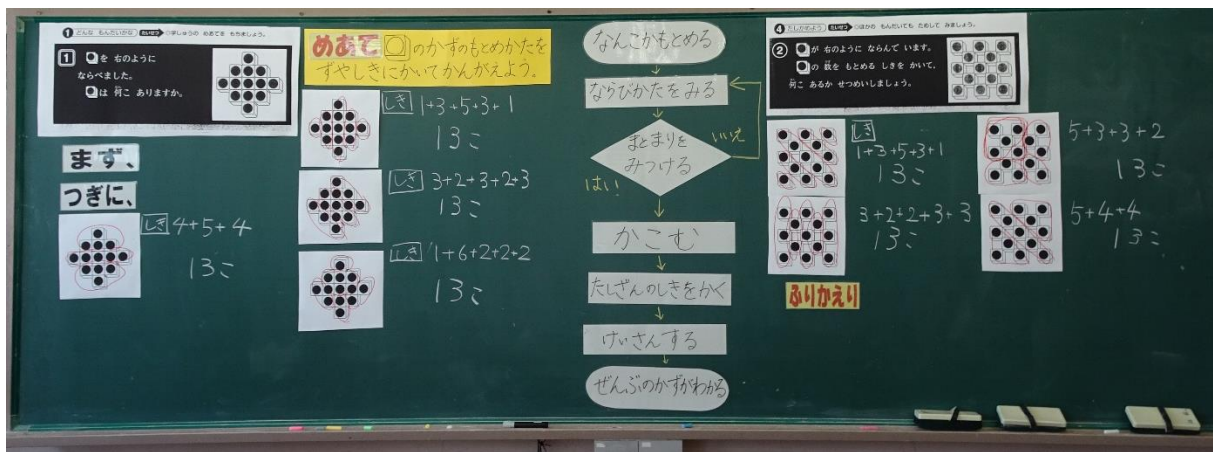 1 どんな もんだいかな たいせつ ○がくしゅうの めあてを もちましょう。
1
を 右のように
ならべました。
は 何こ ありますか。
めあて のかずのもとめかたを
ずやしきにかいてかんがえよう。
まず、
つぎに、
しき 4+5+4
13こ
しき 1+3+5+3+1
13こ
しき 3+2+3+2+3
13こ
しき 1+6+2+2+2
13こ
なんこかもとめる
ならびかたをみる
まとまりを
みつける
いいえ
はい
かこむ
たしざんのしきをかく
けいさんする
ぜんぶのかずがわかる
4 たしかめよう たいせつ ○ほかの もんだいでも ためして みましょう。
2
が 右のように ならんで います。
の 数を もとめる しきを かいて、
何こ あるか せつめいしましょう。
しき
1+3+5+3+1
13こ
3+2+2+3+3
13こ
5+3+3+2
13こ
5+4+4
13こ
ふりかえり